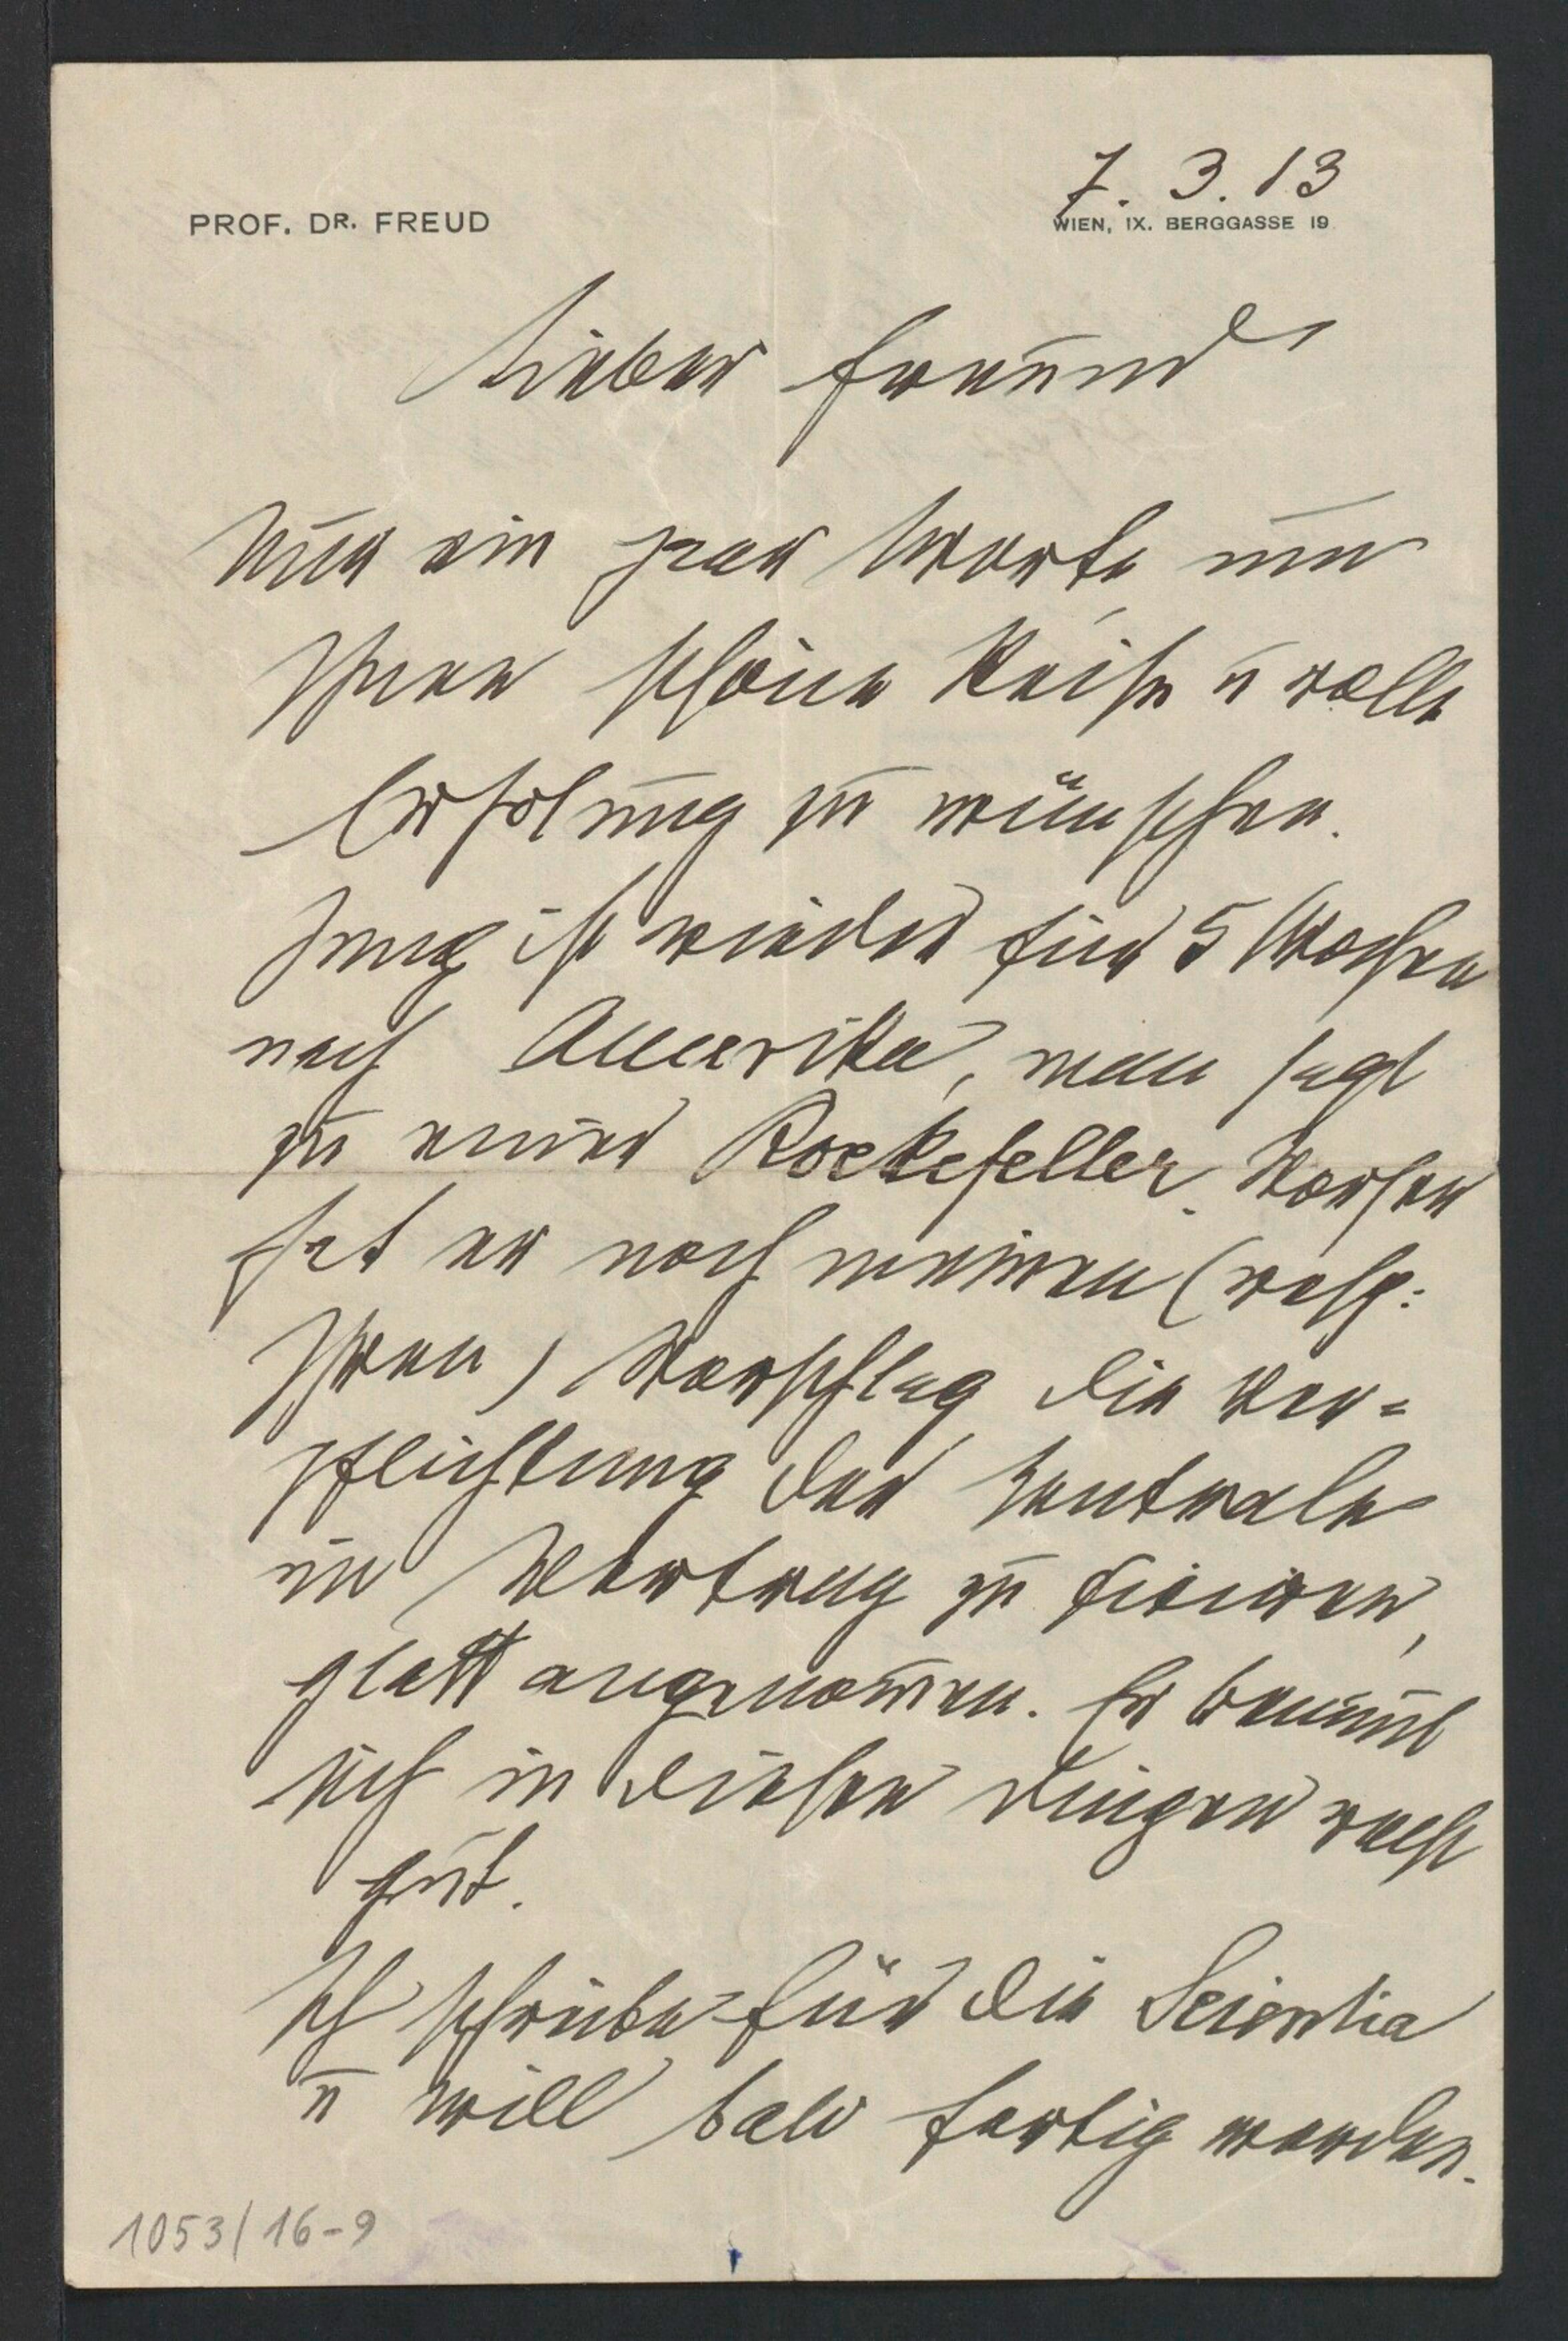 7. 3. 13
PROF. DR. FREUD
WIEN, IX. BERGGASSE 19
Lieber Freund
Nur ein paar Worte um
Ihnen schöne Reise u volle
Erholung zu wünschen.
Jung ist wieder für 5 Wochen
nach Amerika, man sagt
zu einer Rockefeller. Vorher
hat er noch meinen (resp:
Ihren) Vorschlag die Ver=
pflichtung der Zentrale
im Vertrag zu fixiren,
glatt angenom̅en. Er benim̅t
sich in diesen Dingen recht
gut.
Ich schreibe für die Scientia
u will bald fertig werden.
1053/16-9